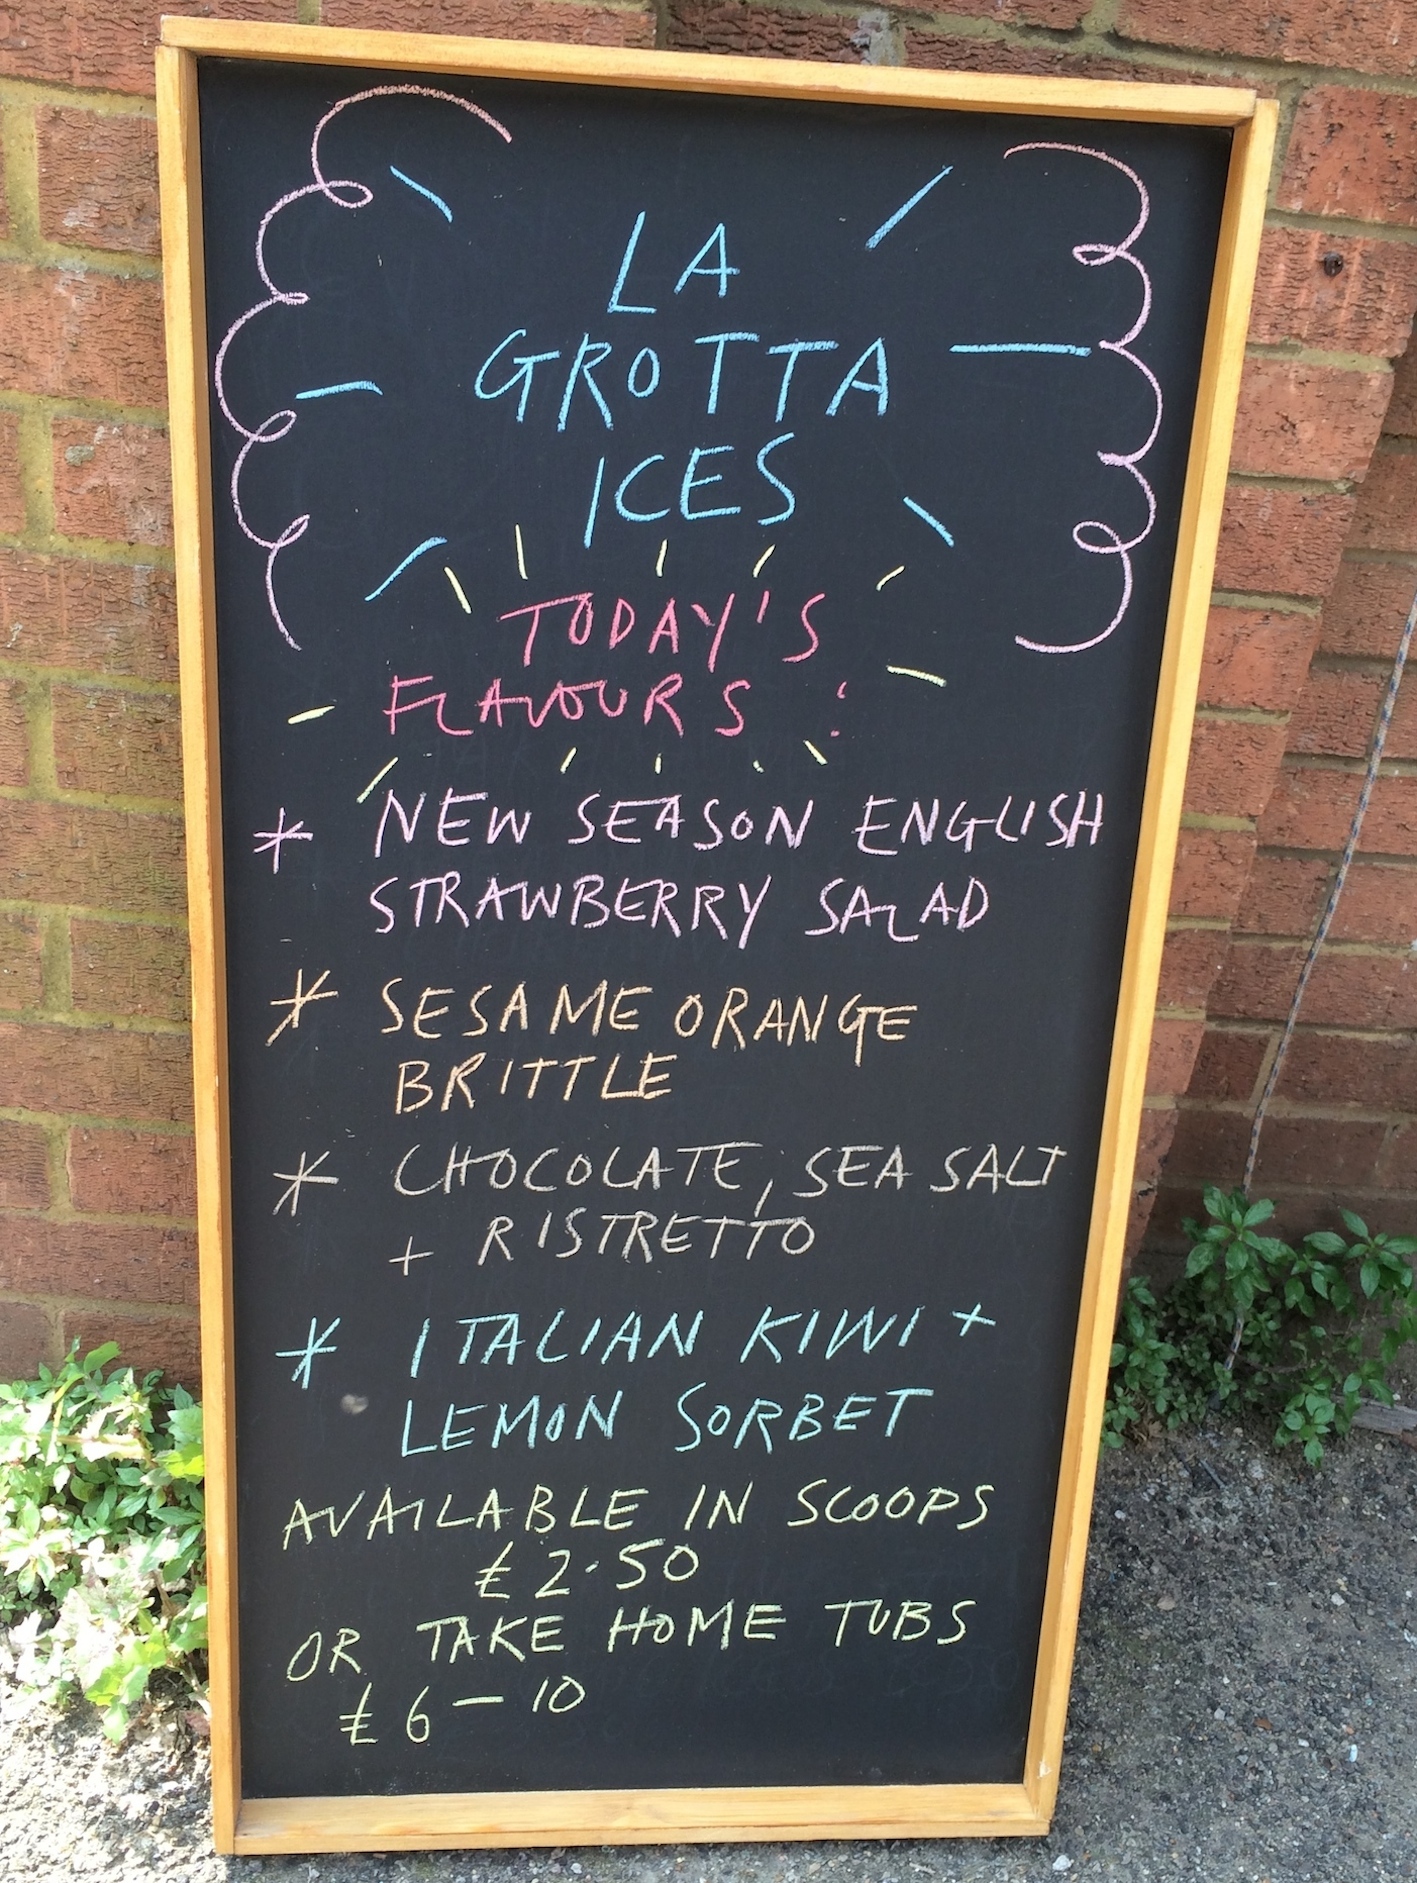 LA
GROTTA
ICES
TODAY'S
FLAVOURS :
* NEW SEASON ENGLISH
STRAWBERRY SALAD
* SESAME ORANGE
BRITTLE
* CHOCOLATE, SEA SALT
+ RISTRETTO
* ITALIAN KIWI +
LEMON SORBET
AVAILABLE IN SCOOPS
£2.50
OR TAKE HOME TUBS
£6-10